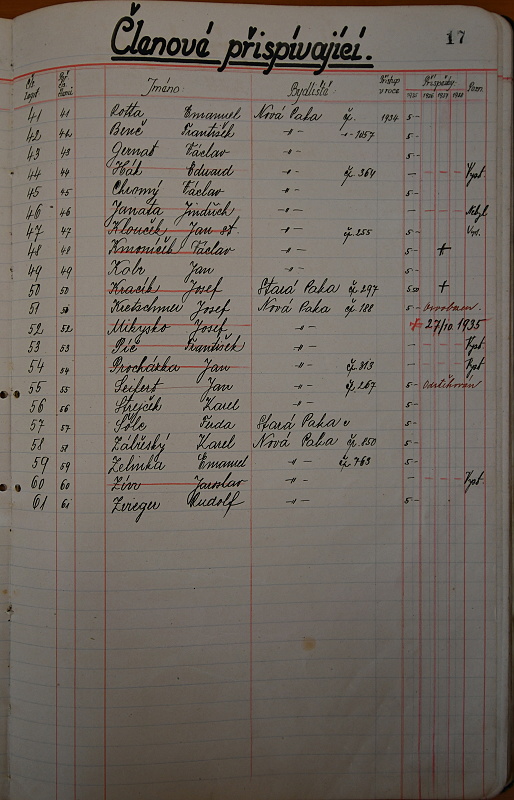 17
Členové přispívající.
Jméno: Bydliště: Přístup v roce Příspěvky Pozn.
1925 1926 1927 1928
41 41 Rotta Emanuel Nová Paka čp. 1924 5 -
42 42 Benč František -"- 1057 5 -
43 43 Gernat Václav -"- 5 -
44 44 Hák Eduard -"- čp. 364 - Vyst.
45 45 Chromý Václav -"- 5 -
46 46 Janata Jindřich -"- -
47 47 Klouček Jan st. -"- čp. 255 5 -
48 48 Kmoníček Václav -"- 5 - +
49 49 Kolr Jan -"- 5 -
50 50 Kracík Josef Stará Paka čp. 297 5.50 +
51 51 Kretschmer Josef Nová Paka čp. 188 5 -
52 52 Mikysko Josef -"- + 27/10 1935
53 53 Píč František -"- - Vyst
54 54 Procházka Jan -"- čp. 313 - Vyst
55 55 Seifert Jan -"- čp. 267 5 -
56 56 Strejček Karel -"- 5 -
57 57 Šolc Ferda Stará Paka 5 -
58 58 Zábřeský Karel Nová Paka čp. 850 5 -
59 59 Zelinka Emanuel -"- čp. 763 5 -
60 60 Jaroslav -"- - Vyst.
61 61 Rudolf -"- 5 -